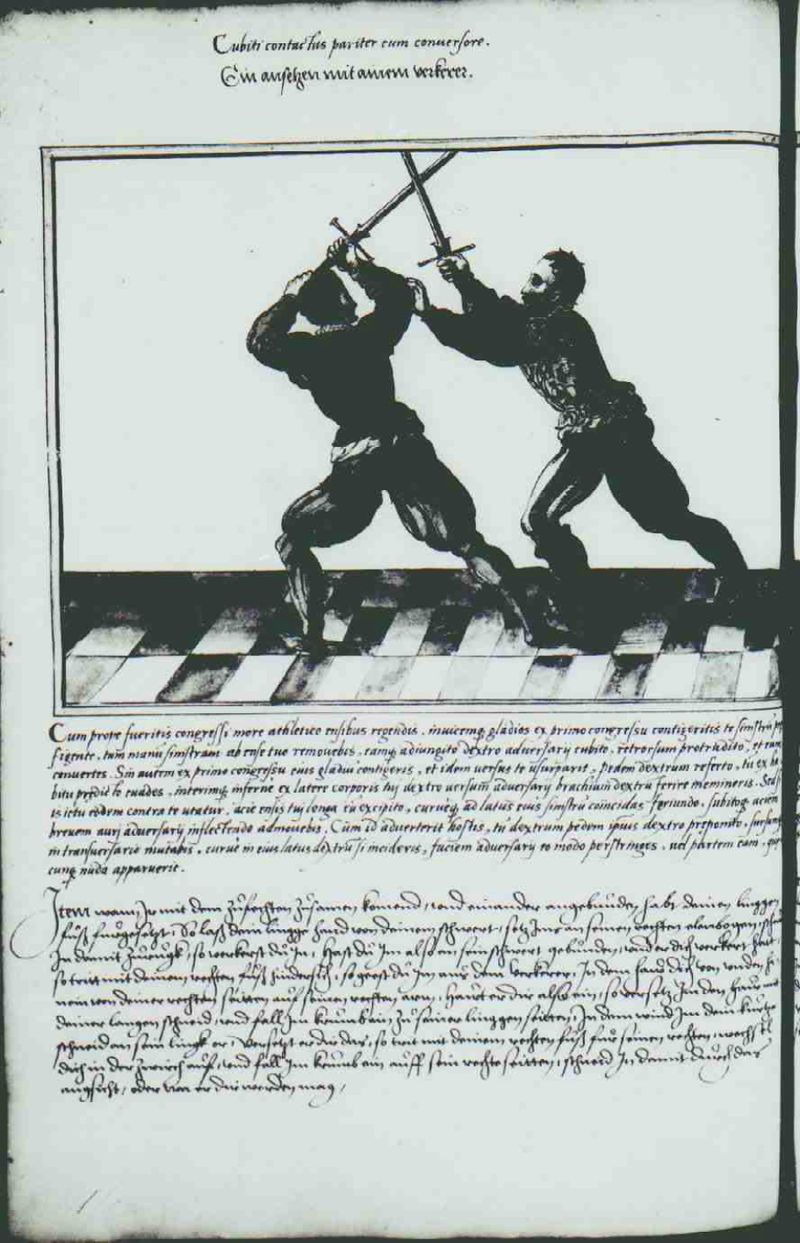 Cubiti contactus pariter cum conversore.
Ein ansetzen mit ainem verkerer.
Cum prope fueritis congressi more athletico ensibus regendis, invicemq̃ gladios ex primo congressu contigeritis te simstrũ
figente, tum manũ simstram ab ense tuo removebis, eamq̃ adiungito dextro adversarij cubito, retrorsum protrudito, et eum
convertes. Sin autem ex primo congressu eius gladiũ contigeris, et idem versus te usurparit, pedem dextrum referto, tu ex
bitu predicto evades, interimq̃ inferne ex latere corporis tuj dextro versum adversarij brachium dextrũ ferire memineris.
is ictu eodem contra te utatur, acie ensis tuj longa eũ excipito, curveq̃ ad latus eius simstrũ coincidas feriundo, subitoq̃ aciem
brevem auri adversarij inflectendo admovebis. Cum id adverterit hostis, tu dextrum pedem ipsius dextro preponito,
in transversario mutabis, curve in eius latus dextrũ si incideris, faciem adversarij eo modo perstringes, vel partem eam,
cunq̃ nuda apparuerit.
Item wann Ir mit dem zůfechten zůsamen komend, und einander angebunden habt deinen linggen
fůß fürgesetzt, So laß dein lingge hand von deinem schwert, setz Im an seinen rechten elenbogen,
In damit zůrugk, so verkerst dů In, Hast dů Im also an sein schwert gebunden, und er dich verkert hat,
so trit mit deinem rechten fůß hindersich, so geest dů Im auß dem verkerer, In dem haw dich von unden
nein von deiner rechten seitten auf seinen rechten arm, Hawt er dir also ein, so versetz Im den haw mit
deiner langen schneid, und fall Im krumb ein, zů seiner linggen seitten, In dem wind Im dein kurtze
schneid an sein lingk or, Versetzt er dir das, so trit mit deinem rechten fůß für seinen rechten, wechsl
dich in der zwirch auf, und fall Im krumb ein auff sein rechte seitten, schneid In damit durch das
angsicht, oder wa er dir werden mag,